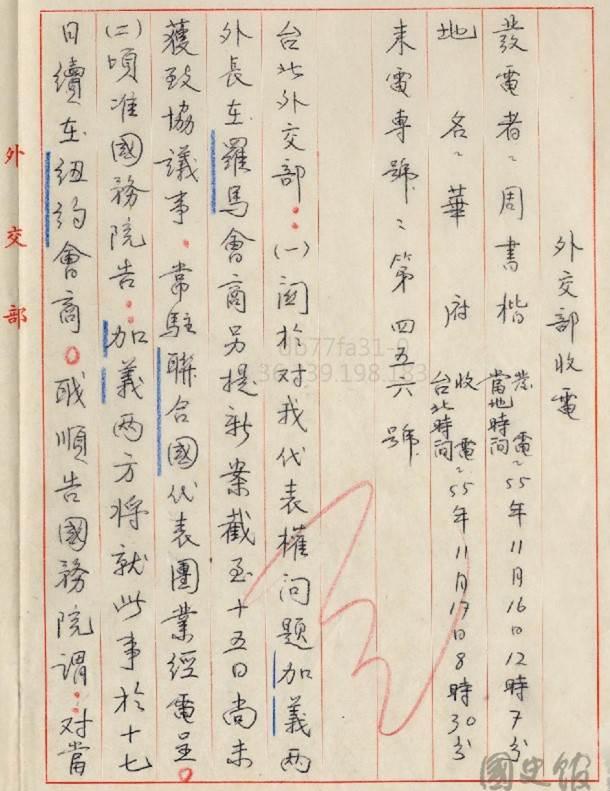 外交部收電
發電者：周書楷
發電：55年11月16日12時7分
當地時間
地名：華府
收電：55年11月17日8時30分
台北時間
來電專號：第四五六號
台北外交部：(一)関於对我代表權问题加義兩
外長在羅馬會商另提新案截至十五日尚未
獲致協議事。常駐聯合國代表團業經電呈。
(二)頃准國務院告：加義兩方將就此事於十七
日續在紐約會商。職順告國務院謂：对當
外交部
db77fa31-0
國史館